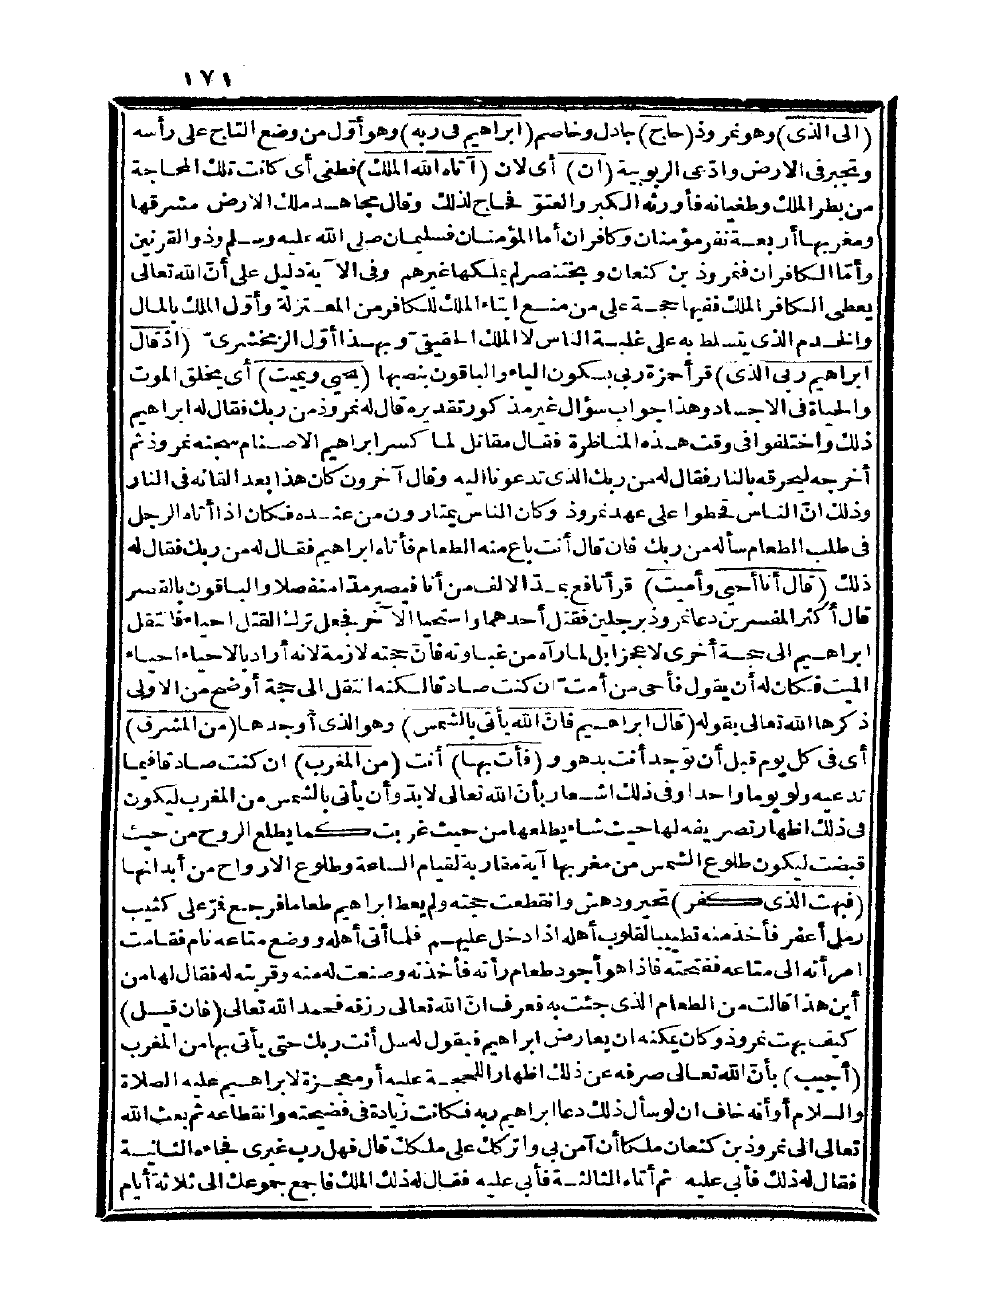 ١٧١
(الى الذى) وهو نمروذ (حاج) جادل وخاصم (ابراهيم فى ربه) وهو أوّل من وضع التاج على رأسه
وتجبر فى الارض وادّعى الربوبية (ان) أى لان (آتاه الله الملك) فطغى أى كانت تلك المحاجة
من بطر الملك وطغيانه فأورثه الكبر والعتوّ فحاج لذلك وقال مجاهد ملك الارض مشرقها
ومغربها أربعة نفر مؤمنان وكافران أما المؤمنان فسليمان صلى الله عليه وسلم وذو القرنين
وأمّا الكافران فنمروذ بن كنعان وبختنصر لم يملكها غيرهم وفى الآية دليل على أنّ الله تعالى
يعطى الكافر الملك ففيها حجة على من منع ايتاء الملك للكافر من المعتزلة وأوّل الملك بالمال
والخدم الذى يتسلط به على غلبة الناس لا الملك الحقيقىّ وبهذا أوّل الزمخشرىّ (اذ قال
ابراهيم ربى الذى) قرأ حمزة ربى بسكون الياء والباقون بنصبها (يحيى ويميت) أى يخلق الموت
والحياة فى الاجساد وهذا جواب سؤال غير مذكور تقديره قال له نمروذ من ربك فقال له ابراهيم
ذلك واختلفوا فى وقت هذه المناظرة فقال مقاتل لما كسر ابراهيم الاصنام سجنه نمروذ ثم
أخرجه ليحرقه بالنار فقال له من ربك الذى تدعونا اليه وقال آخرون كان هذا بعد القائه فى النار
وذلك انّ الناس قحطوا على عهد نمروذ وكان الناس يمتارون من عنده فكان اذا أتاه الرجل
فى طلب الطعام سأله من ربك فان قال أنت باع منه الطعام فأتاه ابراهيم فقال له من ربك فقال له
ذلك (قال أنا أحيى وأميت) قرأ نافع بمدّ الالف من أنا فيصير مدّا منفصلا والباقون بالقصر
قال أكثر المفسرين دعا نمروذ برجلين فقتل أحدهما واستحيا الآخر فجعل ترك القتل احياء فانتقل
ابراهيم الى حجة أخرى لا عجزا بل لما رآه من غباوته فانّ حجته لازمة لانه أراد بالاحياء احياء
الميت فكان له أن يقول فأحى من أمتّ ان كنت صادقا لكنه انتقل الى حجة أوضح من الاولى
ذكرها الله تعالى بقوله (قال ابراهيم فانّ الله يأتى بالشمس) وهو الذى أوجدها (من المشرق)
أى فى كل يوم قبل أن توجد أنت بدهور (فأت بها) أنت (من المغرب) ان كنت صادقا فيما
تدعيه ولو يوما واحدا وفى ذلك اشعار بأنّ الله تعالى لا بدّ وأن يأتى بالشمس من المغرب ليكون
فى ذلك اظهار تصريفه لها حيث شاء يطلعها من حيث غربت كما يطلع الروح من حيث
قبضت ليكون طلوع الشمس من مغربها آية مقاربة لقيام الساعة وطلوع الارواح من أبدانها
(فبهت الذى كفر) تحير ودهش وانقطعت حجته ولم يعط ابراهيم طعاما فرجع فمرّ على كثيب
رمل أعفر فأخذ منه تطييبا لقلوب أهله اذا دخل عليهم فلما أتى أهله ووضع متاعه نام فقامت
امرأته الى متاعه ففتحته فاذا هو أجود طعام رأته فأخذته وصنعت له منه وقربته له فقال لها من
أين هذا قالت من الطعام الذى جئت به فعرف انّ الله تعالى رزقه فحمد الله تعالى (فان قيل)
كيف بهت نمروذ وكان يمكنه ان يعارض ابراهيم فيقول له سل أنت ربك حتى يأتى بها من المغرب
(أجيب) بأنّ الله تعالى صرفه عن ذلك اظهارا للحجة عليه أو معجزة لابراهيم عليه الصلاة
والسلام أو أنه خاف ان لو سأل ذلك دعا ابراهيم ربه فكانت زيادة فى فضيحته وانقطاعه ثم بعث الله
تعالى الى نمروذ بن كنعان ملكا أن آمن بى واتركك على ملكك قال فهل رب غيرى فجاءه الثانية
فقال له ذلك فأبى عليه ثم أتاه الثالثة فأبى عليه فقال له ذلك الملك فاجمع جموعك الى ثلاثة أيام